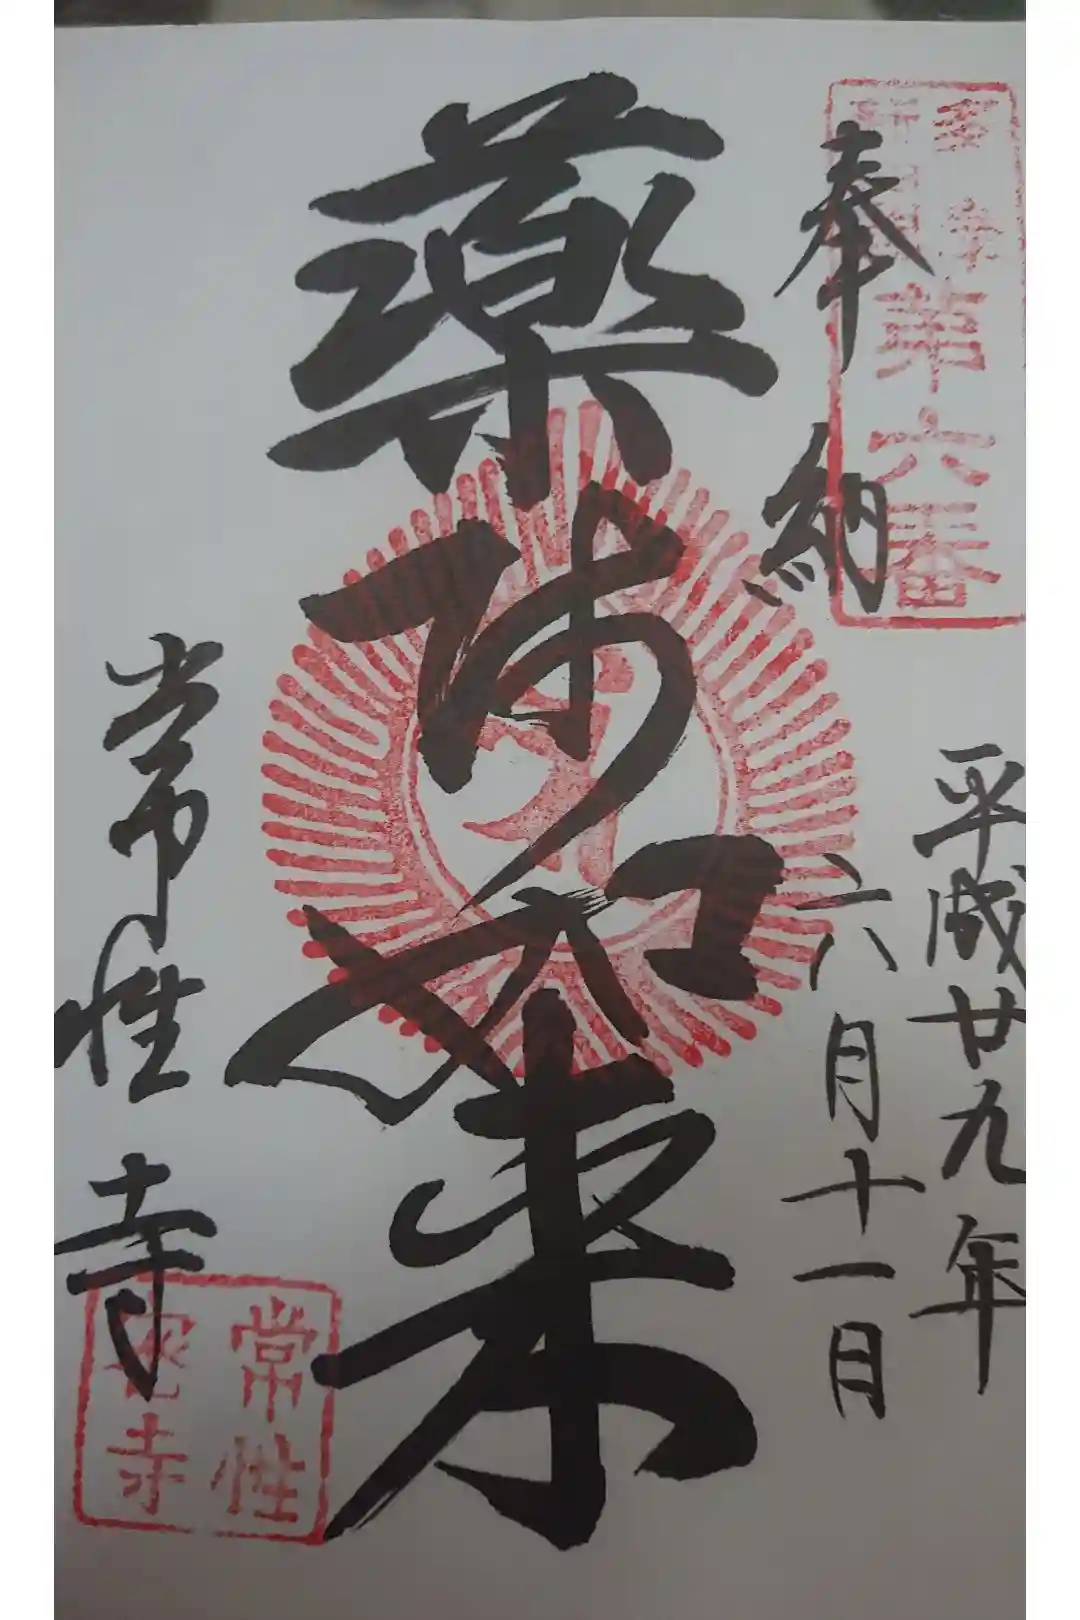 奉納
第六番
平成廿九年
六月十一月
薬师如来
常性寺
常性
寺